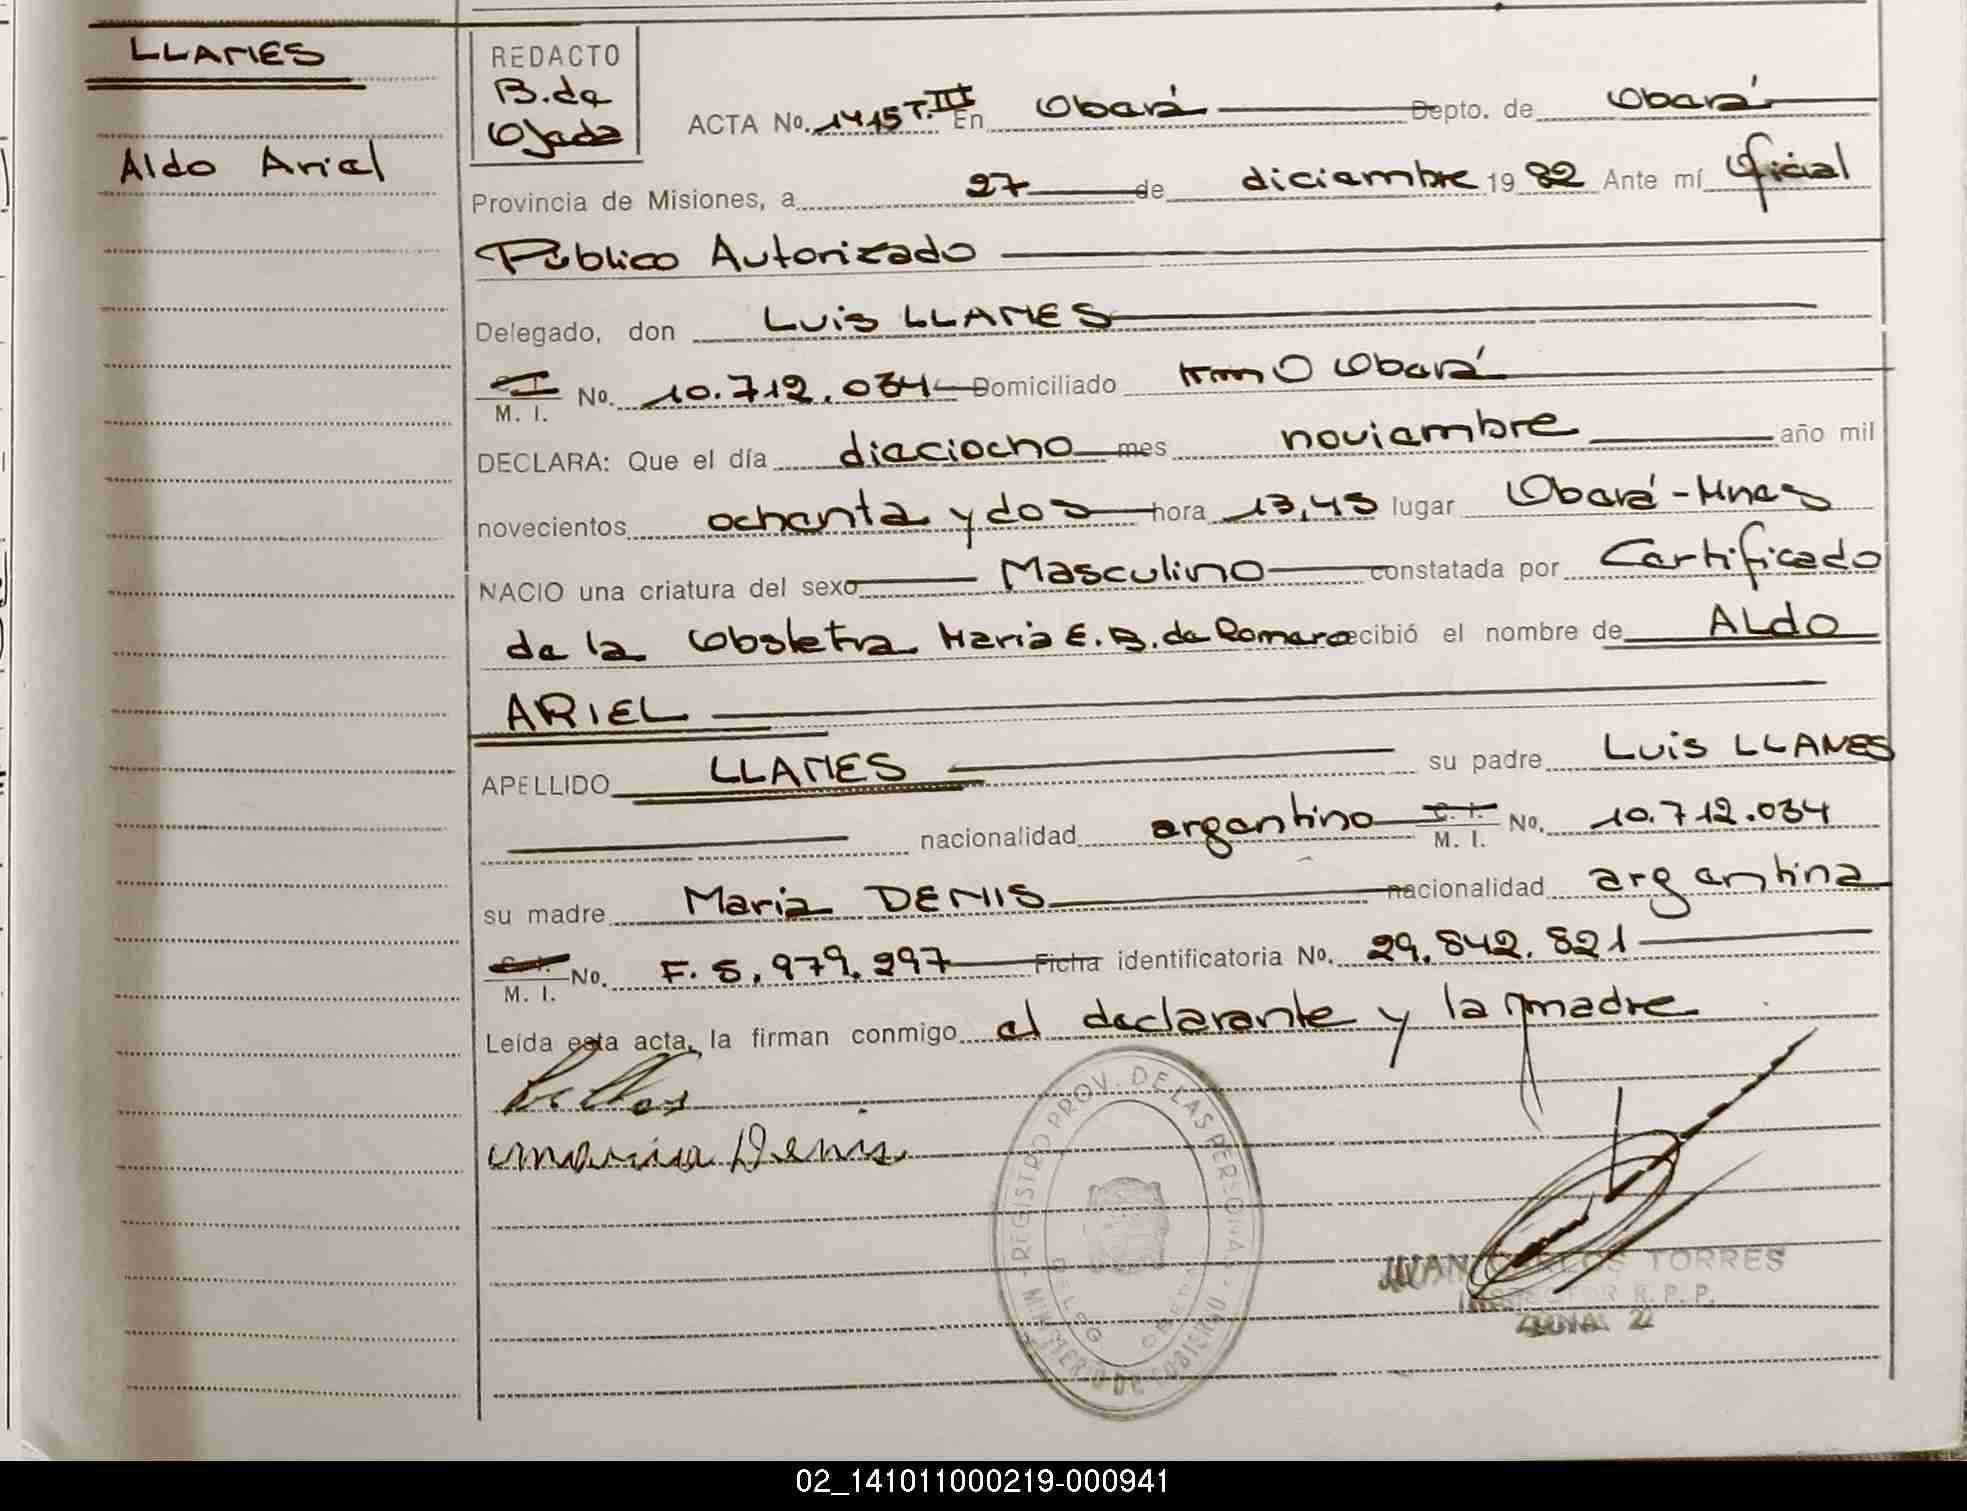 LLANES
Aldo Ariel
REDACTO
B. de
Ojeda
ACTA No. 1415 T. III En Oberá Depto. de Oberá
Provincia de Misiones, a 27 de diciembre 19 82 Ante mí Oficial
Público Autorizado
Delegado, don Luis LLANES
C. I.
M. I. No. 10.712.034 Domiciliado Km 0 Oberá
DECLARA: Que el día dieciocho mes noviembre año mil
novecientos ochenta y dos hora 13,45 lugar Oberá - Mnes
NACIO una criatura del sexo Masculino constatada por Certificado
de la Obstetra Maria E. B. de Romero recibió el nombre de ALDO
ARIEL
APELLIDO LLANES su padre Luis LLANES
nacionalidad argentino C. I. No. 10.712.034
M. I.
su madre Maria DENIS nacionalidad argentina
C. I.
M. I. No. F. 5.979.297 Ficha identificatoria No. 29.842.821
Leída esta acta, la firman conmigo el declarante y la madre
Maria Denis
REGISTRO PROV. DE LAS PERSONAS
MINISTERIO DE GOBIERNO
DELEG. OBERA
JUAN CARLOS TORRES
INSPECTOR R. P. P.
ZONA 22
02_141011000219-000941